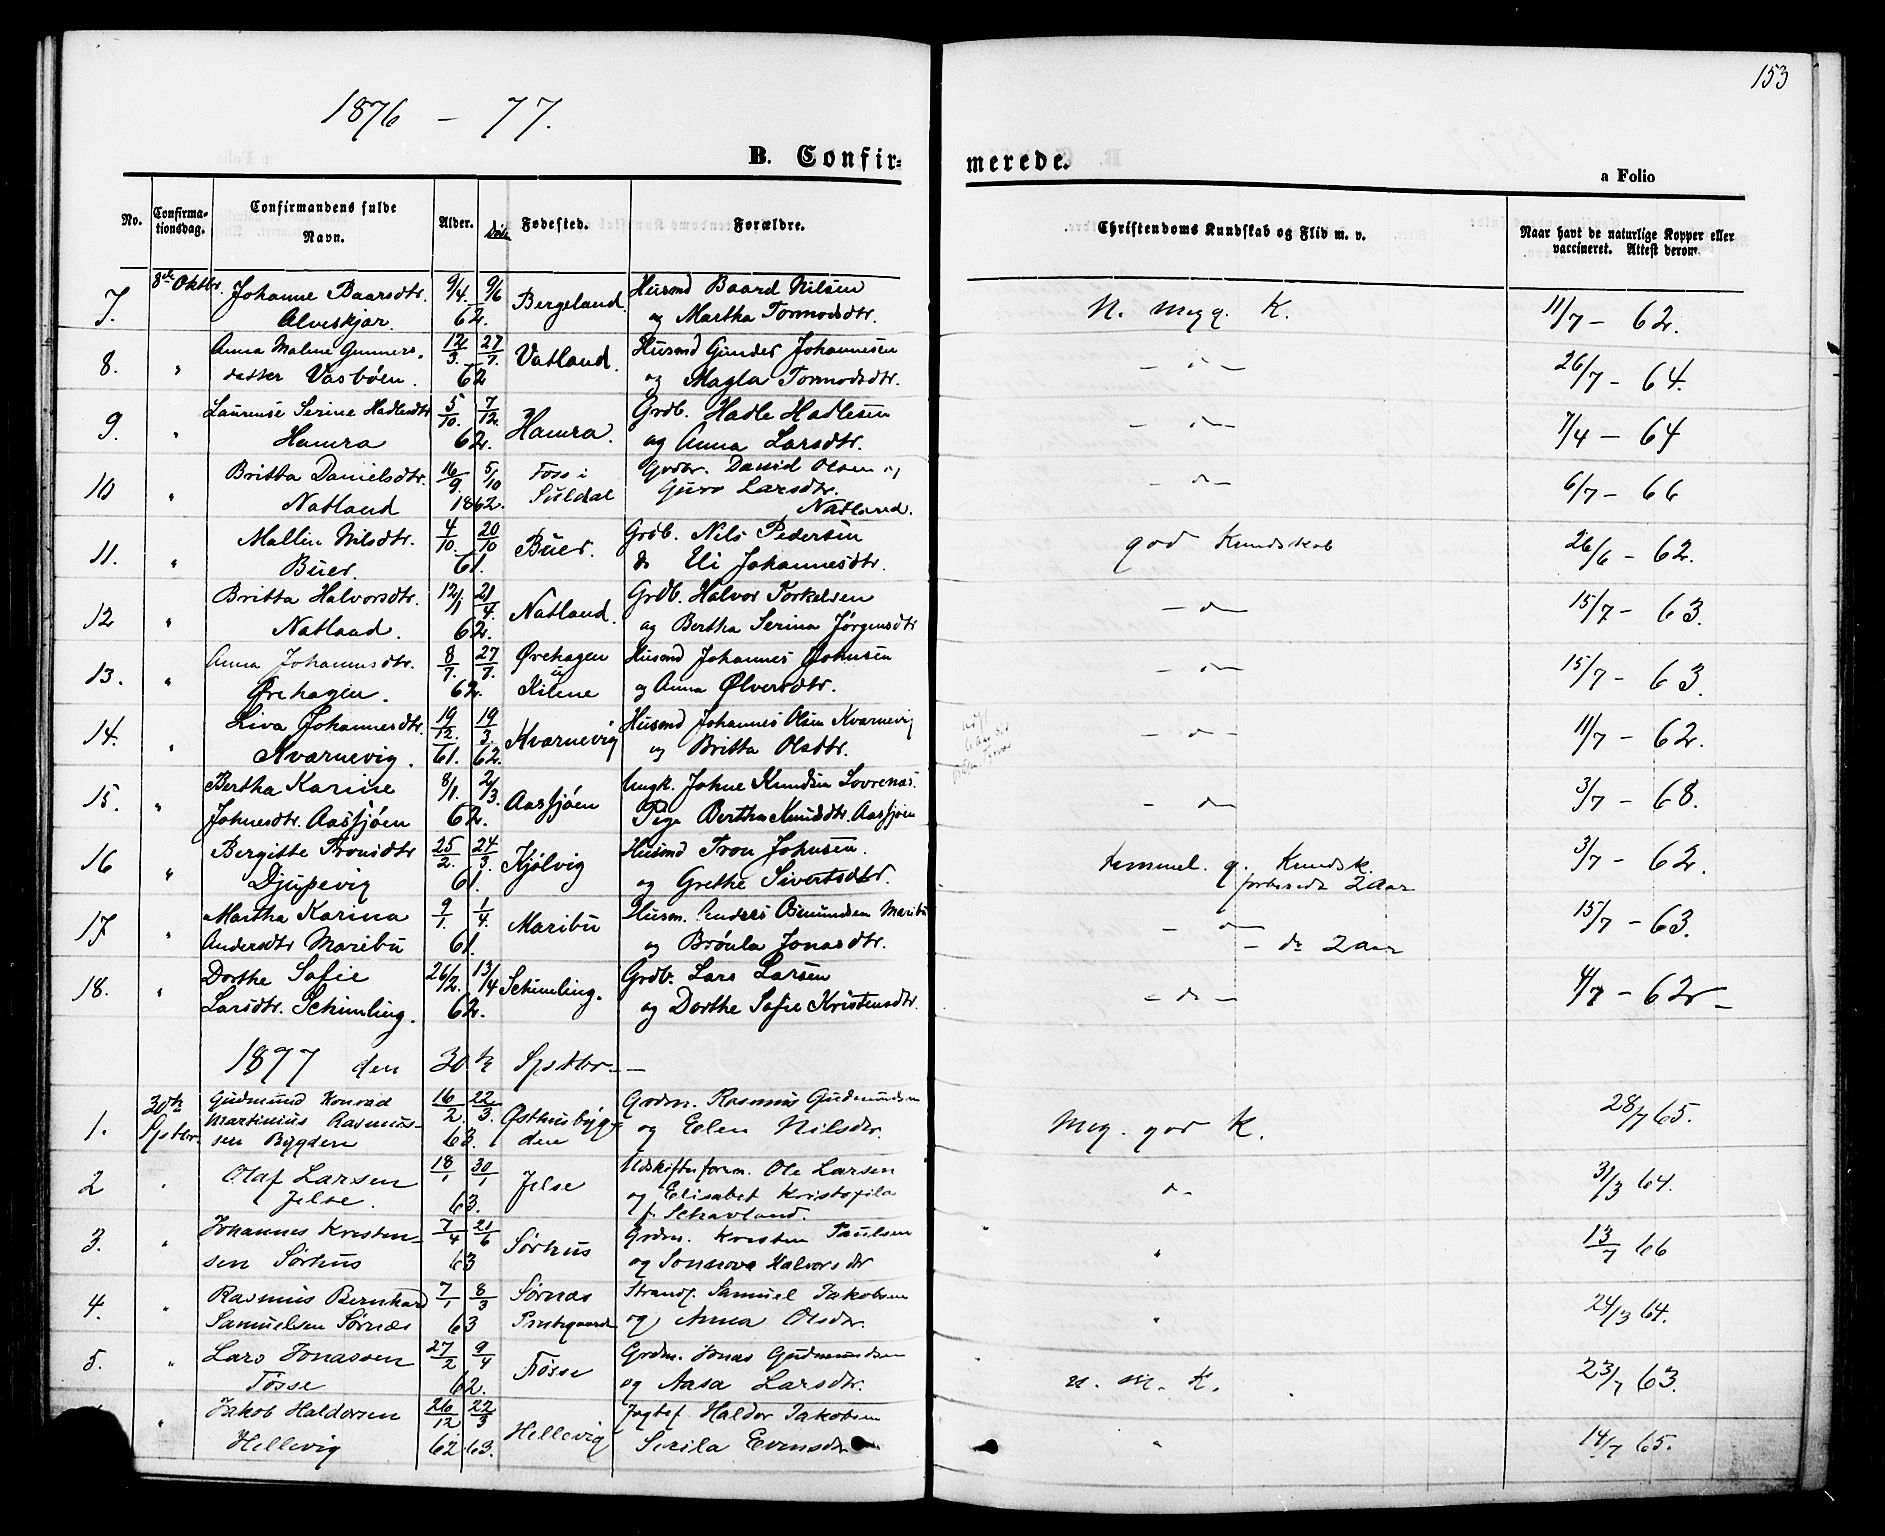 153
1876 - 77.
B. Confir- merede.
a Folio
No.
Confirma-
tionsdag.
Confirmandens fulde
Navn.
Alder.
Fødested.
Forældre.
Christendoms Kundskab og Flid m. v.
Naar havt de naturlige Kopper eller
vaccineret. Attest derom.
8de Oktbr. Johanne Baarsdtr. 9/4. 9/6 Bergeland. Husmd Baard Nilsen
7. Alveskjær. 62. og Martha Tormodsdtr. N. meg g. K. 11/7 - 62.
Anna Malene Gunners- 12/3. 27/7. Vatland. Husmd Gunder Johannesen
8. " datter Vasbøen. 62 og Magla Tormodsdtr. - " - 26/7 - 64.
Laurense Serine Hadlesdtr 5/10. 7/12. Hamra. Grdb. Hadle Hadlesen
9. " Hamra 62. og Anna Larsdtr. - do - 7/4 - 64
Britta Danielsdtr. 16/9. 5/10 Foss i Grdbr. Daniel Olsen og
10 " Natland 1862. Suldal Guro Larsdtr. - do - 6/7 - 66
Natland.
Mallin Nilsdtr. 4/10. 20/10 Buer. Grdb. Nils Pedersen
11. " Buer. 61. & Eli Johannesdtr. god Kundskab 26/6 - 62.
Britta Halvorsdtr. 12/1 21/4 Natland. Grdb. Halvor Torkelsen
12 " Natlaad. 62. og Bertha Serina Jørgensdtr - do - 15/7 - 63.
Anna Johannesdtr. 8/7. 27/7. Ørehagen Husmd Johannes Johnsen
13. " Ørehagen. 62. i Kilene og Anna Ølversdtr. - do - 15/7 - 63.
Liva Johannesdtr. 19/12. 19/3. Kvarnevig Husmd Johannes Olsen Kvarnevig
14. " Kvarnevig. 61. 62. og Britta Olsdtr. - do - 11/7 - 62.
Bertha Karine 8/1. 2/3. Aasjøen Ungk. Johne Knudsen Lovrenæs.
15. " Johnesdtr. Aasjøen 62. Pige Bertha Knudsdtr. Aasjøen - do - 3/7 - 68.
Bergitte Tronsdtr 25/2. 24/3. Kjølvig Husmd Tron Johnsen.
16 " Djupevig 61. og Grethe Sivertsdtr. temmel. g. Kundsk. 3/7 - 62.
forberedt 2 Aar
Martha Karina 9/1. 1/4. Maribu Husm. Anders Osmundsen Maribu
17 " Andersdtr Maribu 61. og Brønla Jonasdtr. - do - 15/7 - 63.
- do 2 Aar
Dorthe Sofie 26/2. 13/4 Schimling. Grdb. Lars Larsen
18. " Larsdtr. Schimling. 62. og Dorthe Sofie Kristensdtr. - do - 4/7 - 62 -
1877 den 30te Septbr. -
30te Gudmund Konrad 16/2. 22/3. Østhusbyg- Grdm. Rasmus Gudmundsen
1. Septbr. Martinius Rasmus- 63. den og Elen Nilsdtr. Meg. god K. 28/7 65.
sen Bygden
Olaf Larsen 18/1 30/1 Jelse Udskiftnforem. Ole Larsen
2 " Jelse. 63. og Elisabet Kristofila do 31/3 64.
f. Schavland.
Johannes Kristen- 7/4 21/6 Sørhus Grdm. Kristen Paulsen
3. " sen Sørhus 63 og Sonnova Halvorsdtr " 13/7 66
Rasmus Bernhard 7/1 8/3 Sørnæs Strandf. Samuel Jakobsen
4. " Samuelsen Sørnæs 63 og Anna Olsdtr. " 24/3 64.
Lars Jonassen 27/2 9/4 Fosse Grdm. Jonas Gudmundsen
5. " Fosse 62. og Aasa Larsdtr. n. m. K. 23/7 63.
Jakob Haldorsen 26/12 22/3 Hellevig Jagtef. Haldor Jakobsen
" Hellevig 62. 63. Serila Evensdtr. " 14/7 65.